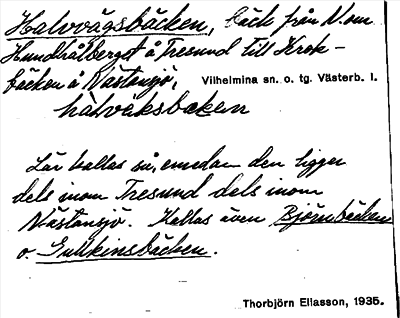 Halvvägsbäcken, bäck från N. om
Hundhålberget å Tresund till Krok-
bäcken å Nästansjö, Vilhelmina sn. o. tg. Västerb. l.
hàlvèksbæken
Lär kallas så, emedan den ligger
dels inom Tresund dels inom
Nästansjö. Kallas även Björnbäcken
o. Gullkinsbäcken.
Thorbjörn Eliasson, 1935.